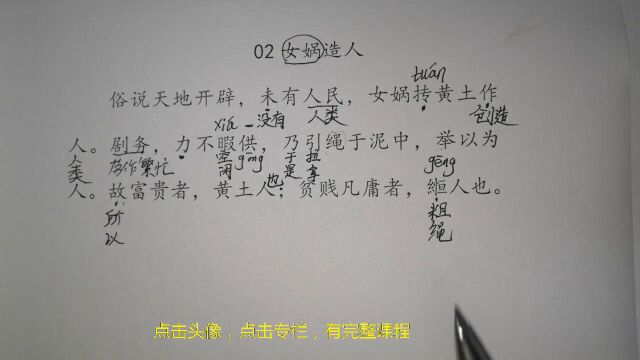 02 女娲造人
tuán
俗说天地开辟，未有人民，女娲抟黄土作
xiá 没有 人类 创造
人。剧务，力不暇供，乃引绳于泥中，举以为
人类 繁忙 空闲 gōng 于是 拉 gēng
也
人。故富贵者，黄土人；贫贱凡庸者，縆人也。
所以 粗绳
点击头像，点击专栏，有完整课程